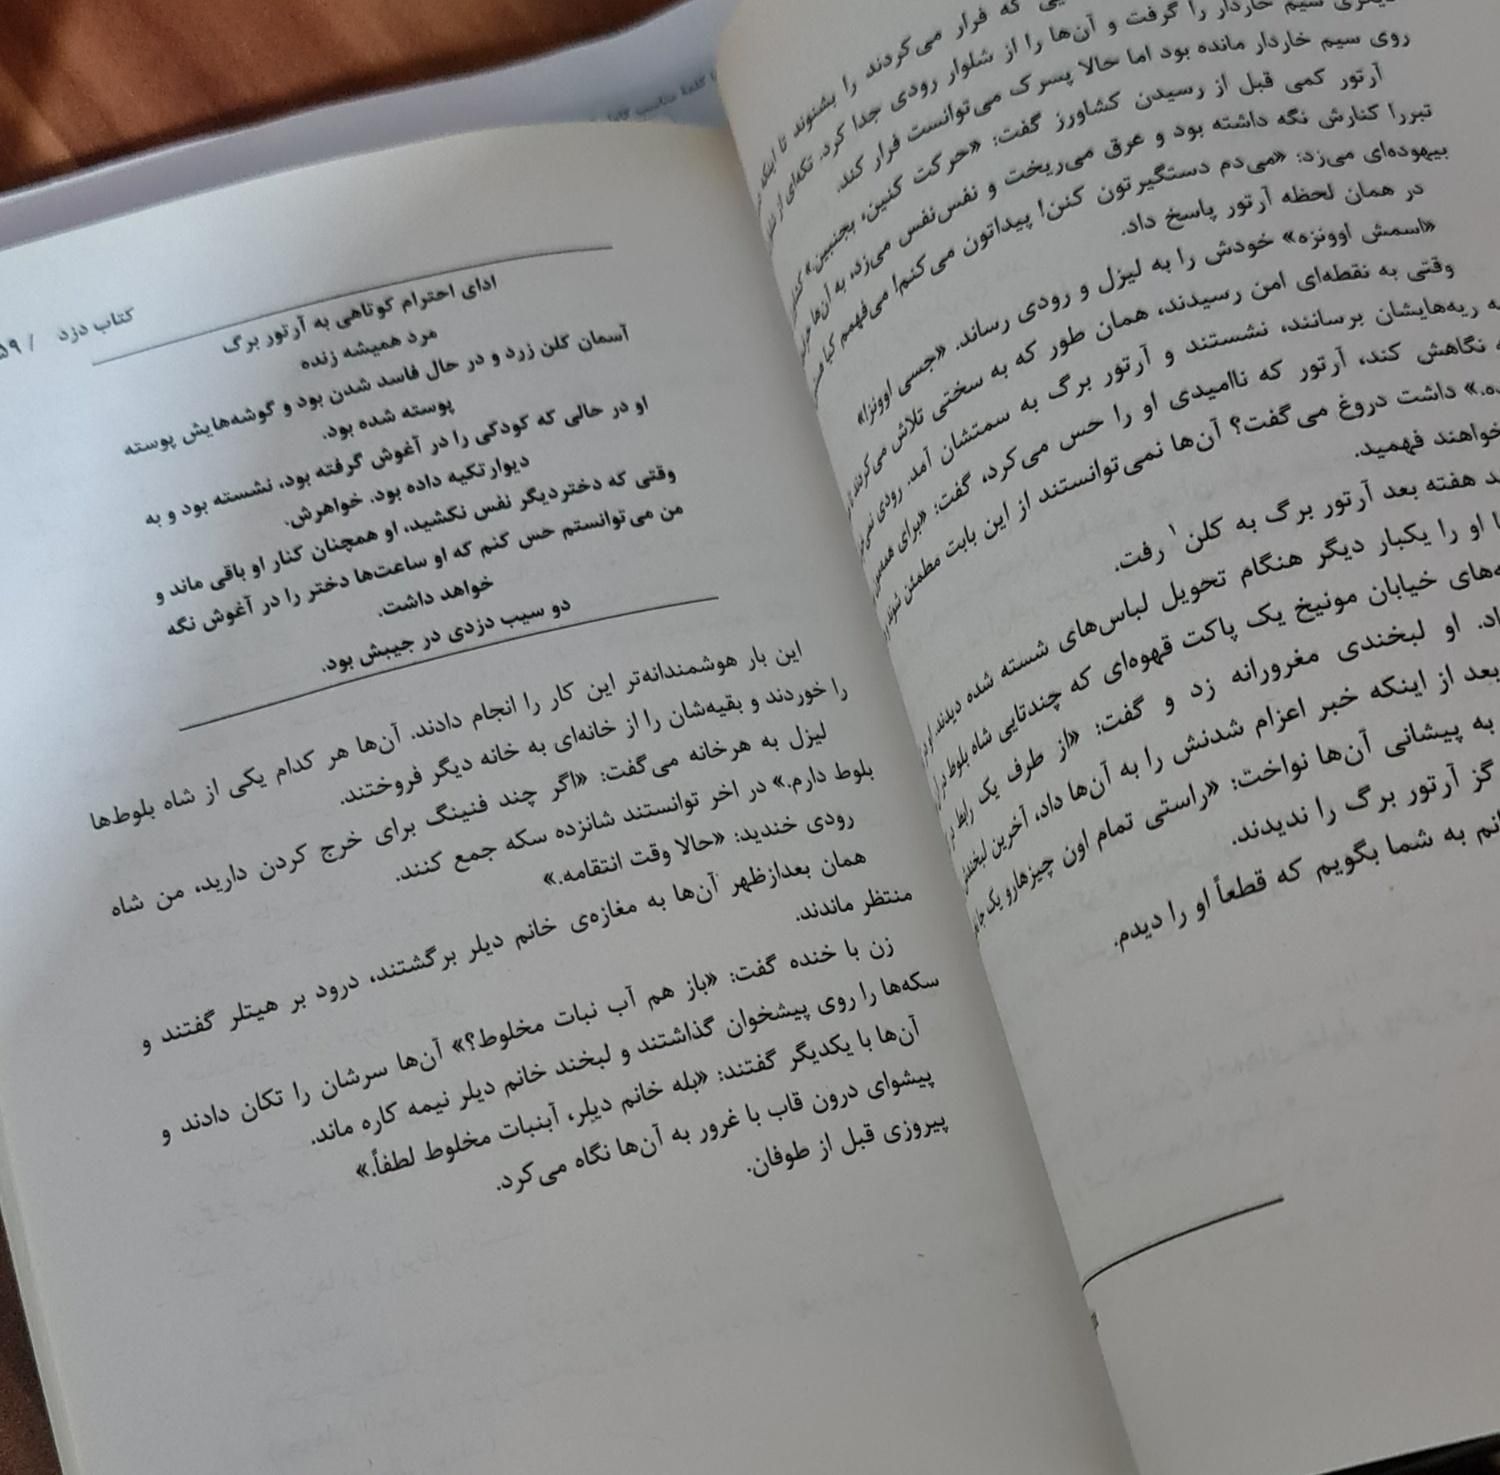 یی که فرار می‌کردند را بشنوند تا اینکه
دیگری سیم خاردار را گرفت و آن‌ها را از شلوار رودی جدا کرد. تکه‌ای از
روی سیم خاردار مانده بود اما حالا پسرک می‌توانست فرار کند.
آرتور کمی قبل از رسیدن کشاورز گفت: «حرکت کنین، بجنبین»
تبررا کنارش نگه داشته بود و عرق می‌ریخت و نفس‌نفس می‌زد، به آن‌ها
بیهوده‌ای می‌زد: «می‌دم دستگیرتون کنن! پیداتون می‌کنم! می‌فهمم کیا
در همان لحظه آرتور پاسخ داد.
«اسمش اوونزه» خودش را به لیزل و رودی رساند. «جسی اوونز!»
وقتی به نقطه‌ای امن رسیدند، همان طور که به سختی تلاش می‌کردند
ه ریه‌هایشان برسانند، نشستند و آرتور برگ به سمتشان آمد. رودی
نگاهش کند، آرتور که ناامیدی او را حس می‌کرد، گفت: «برای
ده.» داشت دروغ می‌گفت؟ آن‌ها نمی‌توانستند از این بابت مطمئن شوند
خواهند فهمید.
د هفته بعد آرتور برگ به کلن۱ رفت.
ا او را یکبار دیگر هنگام تحویل لباس‌های شسته شده دیدند.
ه‌های خیابان مونیخ یک پاکت قهوه‌ای که چندتایی شاه بلوط در آن
اد. او لبخندی مغرورانه زد و گفت: «از طرف یک رابط
بعد از اینکه خبر اعزام شدنش را به آن‌ها داد، آخرین
به پیشانی آن‌ها نواخت: «راستی تمام اون چیزهارو یک
گز آرتور برگ را ندیدند.
انم به شما بگویم که قطعاً او را دیدم.
کتاب دزد / ۵۹
ادای احترام کوتاهی به آرتور برگ
مرد همیشه زنده
آسمان کلن زرد و در حال فاسد شدن بود و گوشه‌هایش پوسته
پوسته شده بود.
او در حالی که کودکی را در آغوش گرفته بود، نشسته بود و به
دیوارتکیه داده بود. خواهرش.
وقتی که دختردیگر نفس نکشید، او همچنان کنار او باقی ماند و
من می‌توانستم حس کنم که او ساعت‌ها دختر را در آغوش نگه
خواهد داشت.
دو سیب دزدی در جیبش بود.
این بار هوشمندانه‌تر این کار را انجام دادند. آن‌ها هر کدام یکی از شاه بلوط‌ها
را خوردند و بقیه‌شان را از خانه‌ای به خانه دیگر فروختند.
لیزل به هرخانه می‌گفت: «اگر چند فنینگ برای خرج کردن دارید، من شاه
بلوط دارم.» در اخر توانستند شانزده سکه جمع کنند.
رودی خندید: «حالا وقت انتقامه.»
همان بعدازظهر آن‌ها به مغازه‌ی خانم دیلر برگشتند، درود بر هیتلر گفتند و
منتظر ماندند.
زن با خنده گفت: «باز هم آب نبات مخلوط؟» آن‌ها سرشان را تکان دادند و
سکه‌ها را روی پیشخوان گذاشتند و لبخند خانم دیلر نیمه کاره ماند.
آن‌ها با یکدیگر گفتند: «بله خانم دیلِر، آبنبات مخلوط لطفاً.»
پیشوای درون قاب با غرور به آن‌ها نگاه می‌کرد.
پیروزی قبل از طوفان.